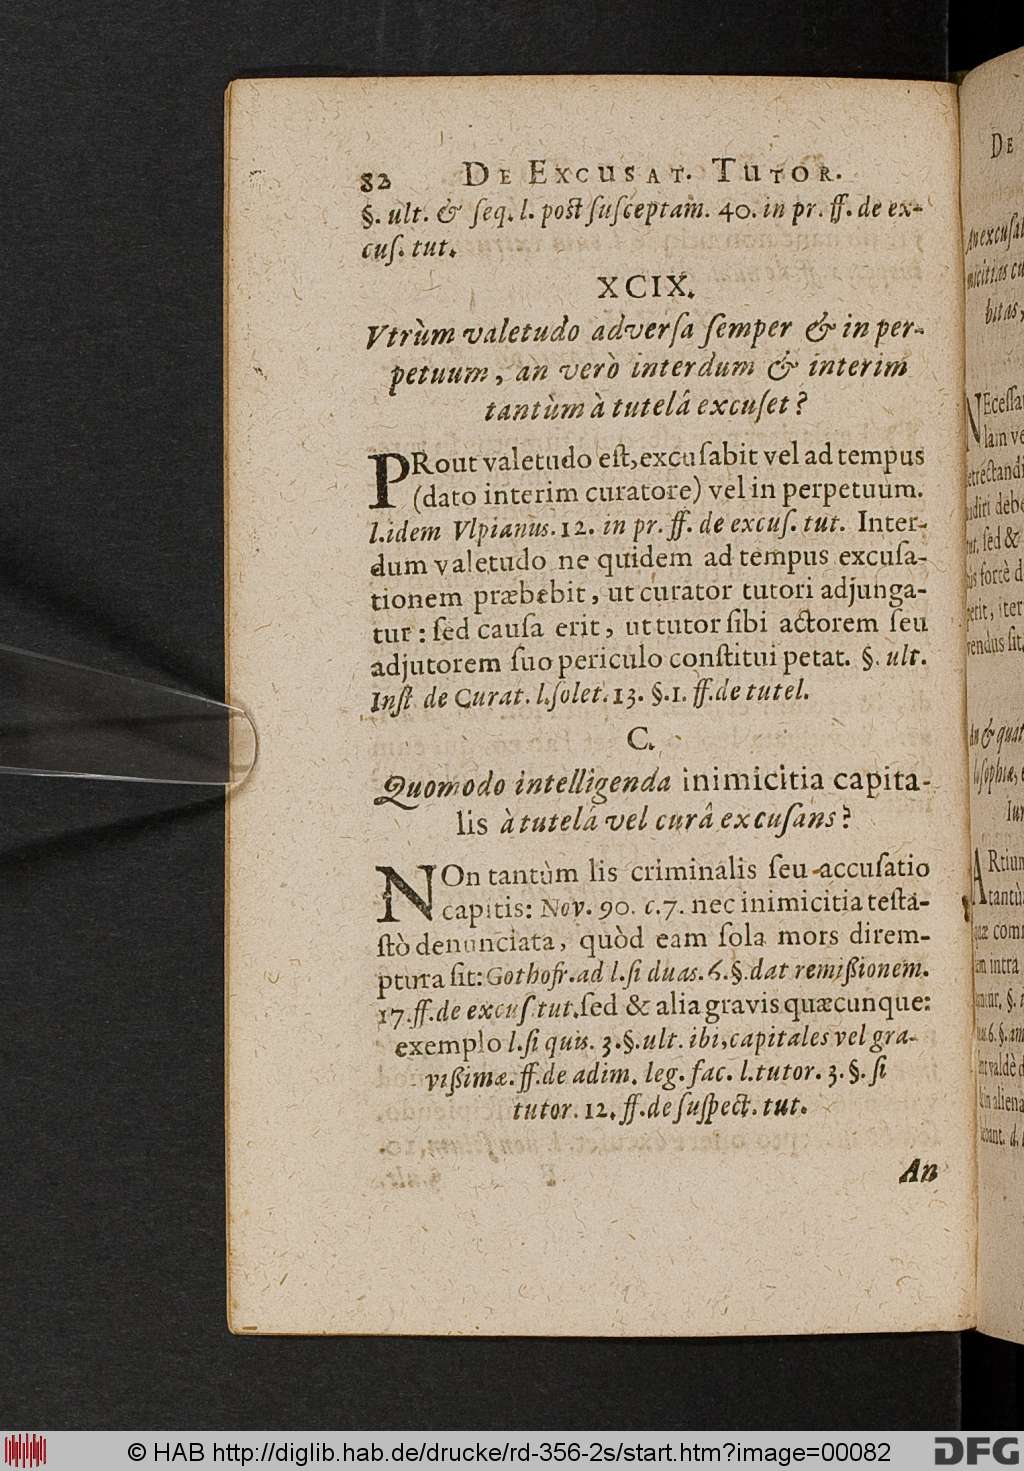 82 DE EXCUSAT. TUTOR.
§. ult. & ſeq. l. poſt ſuſceptam. 40. in pr. ff. de ex-
cuſ. tut.
XCIX.
Vtrùm valetudo adverſa ſemper & in per-
petuum, an verò interdum & interim
tantùm à tutelâ excuſet?
PRout valetudo eſt, excuſabit vel ad tempus
(dato interim curatore) vel in perpetuum.
l. idem Vlpianus. 12. in pr. ff. de excuſ. tut. Inter-
dum valetudo ne quidem ad tempus excuſa-
tionem præbebit, ut curator tutori adjunga-
tur: ſed cauſa erit, ut tutor ſibi actorem ſeu
adjutorem ſuo periculo conſtitui petat. §. ult.
Inſt de Curat. l. ſolet. 13. §. 1. ff. de tutel.
C.
Quomodo intelligenda inimicitia capita-
lis à tutelâ vel curâ excuſans?
NOn tantùm lis criminalis ſeu accuſatio
capitis: Nov. 90. c. 7. nec inimicitia teſta-
ſtò denunciata, quòd eam ſola mors direm-
ptura ſit: Gothofr. ad l. ſi duas. 6. §. dat remißionem.
17. ff. de excuſ tut. ſed & alia gravis quæcunque:
exemplo l. ſi quis. 3. §. ult. ibi, capitales vel gra-
vißimæ. ff. de adim. leg. fac. l. tutor. 3. §. ſi
tutor. 12. ff. de ſuſpect. tut.
An
DE
An excuſat
micitias cu
bitas,
NEceſſa
lam ve
detrectandi
tut. ſed &
petit, iter
rendus ſit.
An & quat
loſophiæ, e
Iur
ARtium
tantù
quæ com
© HAB http://diglib.hab.de/drucke/rd-356-2s/start.htm?image=00082
DFG